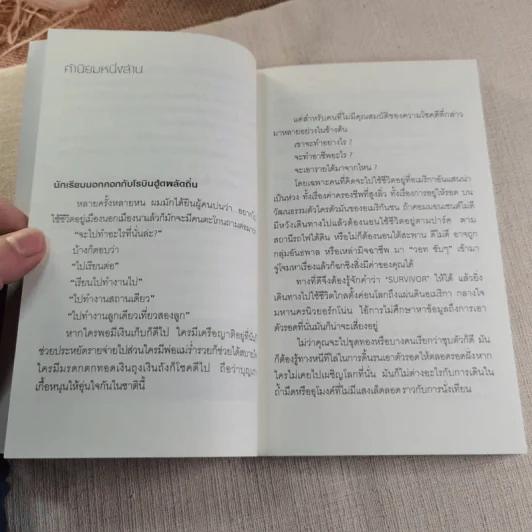 คำนิยมหนึ่งล้าน
นักเรียนนอกคอกกับโรบินฮู้ดพลัดถิ่น
หลายครั้งหลายหน ผมมักได้ยินผู้คนบ่นว่า อยากไป
ใช้ชีวิตอยู่เมืองนอกเมืองนาแล้วก็มักจะมีคนตะโกนถามต่อมาว่า
“จะไปทำอะไรที่นั่นล่ะ?”
บ้างก็ตอบว่า
“ไปเรียนต่อ”
“เรียนไปทำงานไป”
“ไปทำงานสถานเดียว”
“ไปทำงานลูกเดียวเที่ยวสองลูก”
หากใครพอมีเงินเก็บก็ดีไป ใครมีเครือญาติอยู่ที่นั่น
ช่วยประหยัดรายจ่ายไปส่วนใครมีพ่อแม่ร่ำรวยก็ช่วยได้สบาย
ใครมีมรดกตกทอดเงินถุงเงินถังก็โชคดีไป ถือว่าบุญเก่า
เกื้อหนุนให้อุ่นใจกันในชาตินี้
แต่สำหรับคนที่ไม่มีคุณสมบัติของความโชคดีที่กล่าว
มาหลายอย่างในข้างต้น
เขาจะทำอย่างไร ?
จะทำอาชีพอะไร ?
จะเอารายได้มาจากไหน ?
โดยเฉพาะคนที่คิดจะไปใช้ชีวิตอยู่ที่อเมริกาอันแสนน่า
เป็นห่วง ทั้งเรื่องค่าครองชีพที่สูงลิ่ว ทั้งเรื่องการอยู่ให้รอด บน
วัฒนธรรมตัวใครตัวมันของอเมริกันชน
มีหวังเดินทางไปแล้วต้องนอนใช้ชีวิตอยู่ตามปาร์ค ตาม
สถานีรถไฟใต้ดิน หรือไม่ก็ต้องนอนใต้สะพาน ดีไม่ดี อาจถูก
กลุ่มอันธพาล หรือเหล่ามิจฉาชีพ มา “วอท ซับๆ” เข้ามา
จู่โจมหาเรื่องแล้วก็ยกชิงสิ่งมีค่าของคุณได้
ทางที่ดีจึงต้องรู้จักคำว่า “SURVIVOR” ให้ได้ แล้วยิ่ง
เดินทางไปใช้ชีวิตไกลตั้งค่อนโลกถึงแผ่นดินอเมริกา กลางใจ
มหานครนิวยอร์กโน่น ใช้การไม่ศึกษาหาข้อมูลถึงการเอา
ตัวรอดที่นั่นมันก็น่าจะเสี่ยงอยู่
ไม่ว่าคุณจะไปขุดทองหรือบางคนเรียกว่าชุบตัวก็ดี มัน
ก็ต้องรู้ทางหนีทีไล่ในการดิ้นรนเอาตัวรอดให้ตลอดรอดฝั่งหาก
ใครไม่เคยไปเผชิญโลกที่นั่น มันก็ไม่ต่างอะไรกับการเดินใน
ถ้ำมืดหรืออุโมงค์ที่ไม่มีแสงเล็ดลอด ราวกับการนั่งเทียน